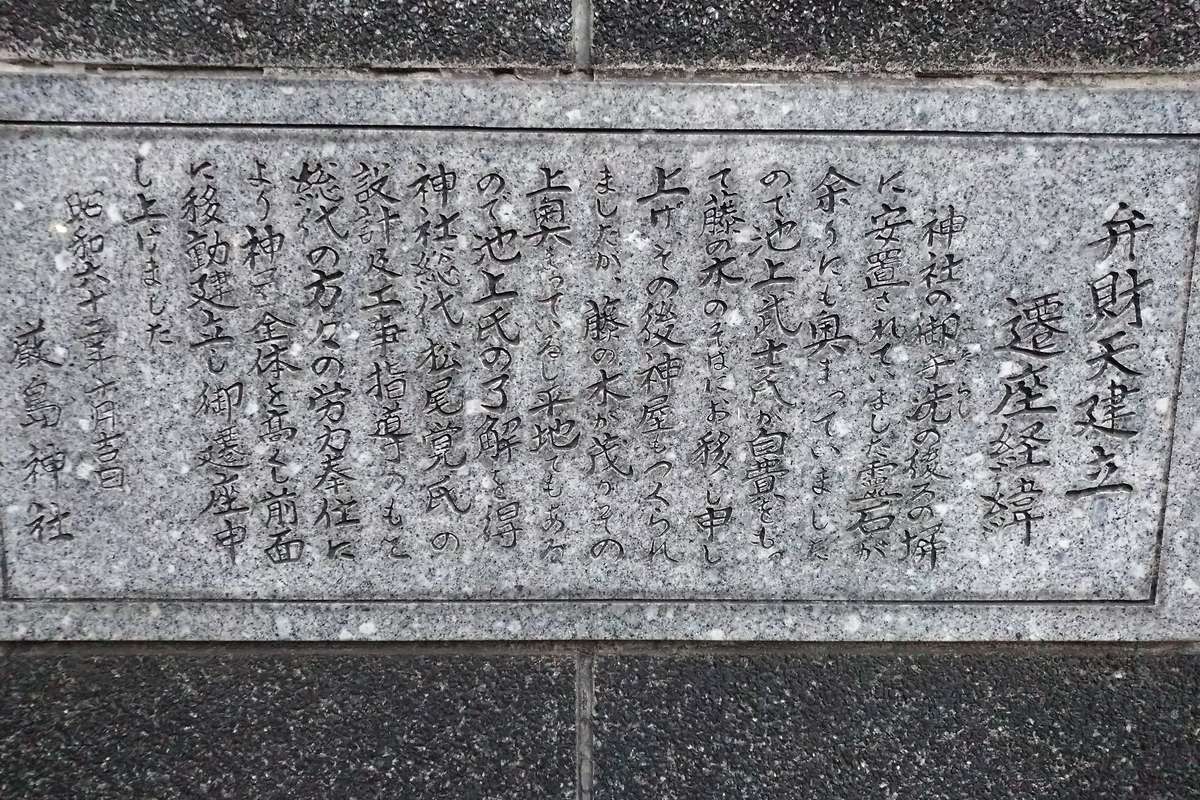 弁財天建立
遷座経緯
神社の御手洗の後の塀
に安置されていました霊石が
余りにも奥まっていました
ので池上武士氏が自費をもっ
て藤の木のそばにお移し申し
上げその後神屋もつくられ
ましたが、藤の木が茂りその
上奥まっているし平地でもある
ので池上氏の了解を得
神社総代 松尾覚氏の
設計及工事指導のもと
総代の方々の労力奉仕に
より神 全体を高くし前面
に後動建立し御遷座申
し上げました
昭和六十 年十月吉日
厳島神社